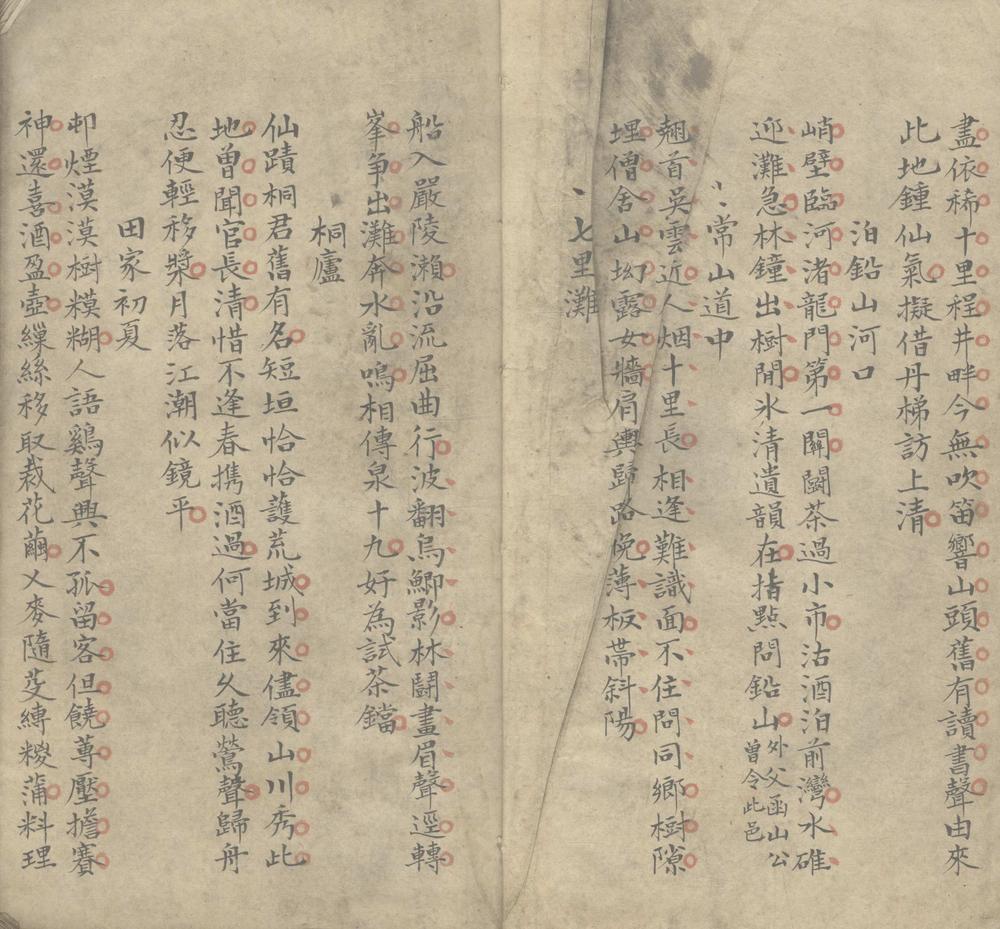 盡依稀十里程井畔今無吹笛響山頭舊有讀書聲由來
此地鍾仙氣擬借丹梯訪上清
泊鉛山河口
峭壁臨河渚龍門第一關鬪茶過小市沽酒泊前灣水碓
迎灘急林鐘出樹閒氷清遺韻在指點問鉛山外父函山公曾令此邑
常山道中
翹首吳雲近人烟十里長相逢難識面不住問同鄉樹隙
埋僧舍山坳露女牆肩輿歸路悗薄板帶斜陽
七里灘
船入嚴陵瀨沿流屈曲行波翻烏鯽影林鬪畫眉聲逕轉
峯争出灘奔水亂鳴相傳泉十九好為試茶鐺
桐廬
仙蹟桐君舊有名短垣恰恰護荒城到來儘領山川秀此
地曾聞官長清惜不逢春携酒過何當住久聽鶯聲歸舟
忍便輕移槳月落江潮似鏡平
田家初夏
邨煙漠漠樹糢糊人語鷄聲興不孤留客但饒蓴壓擔賽
神還喜酒盈壺繅絲移取栽花繭乂麥隨芟縛糉蒲料理